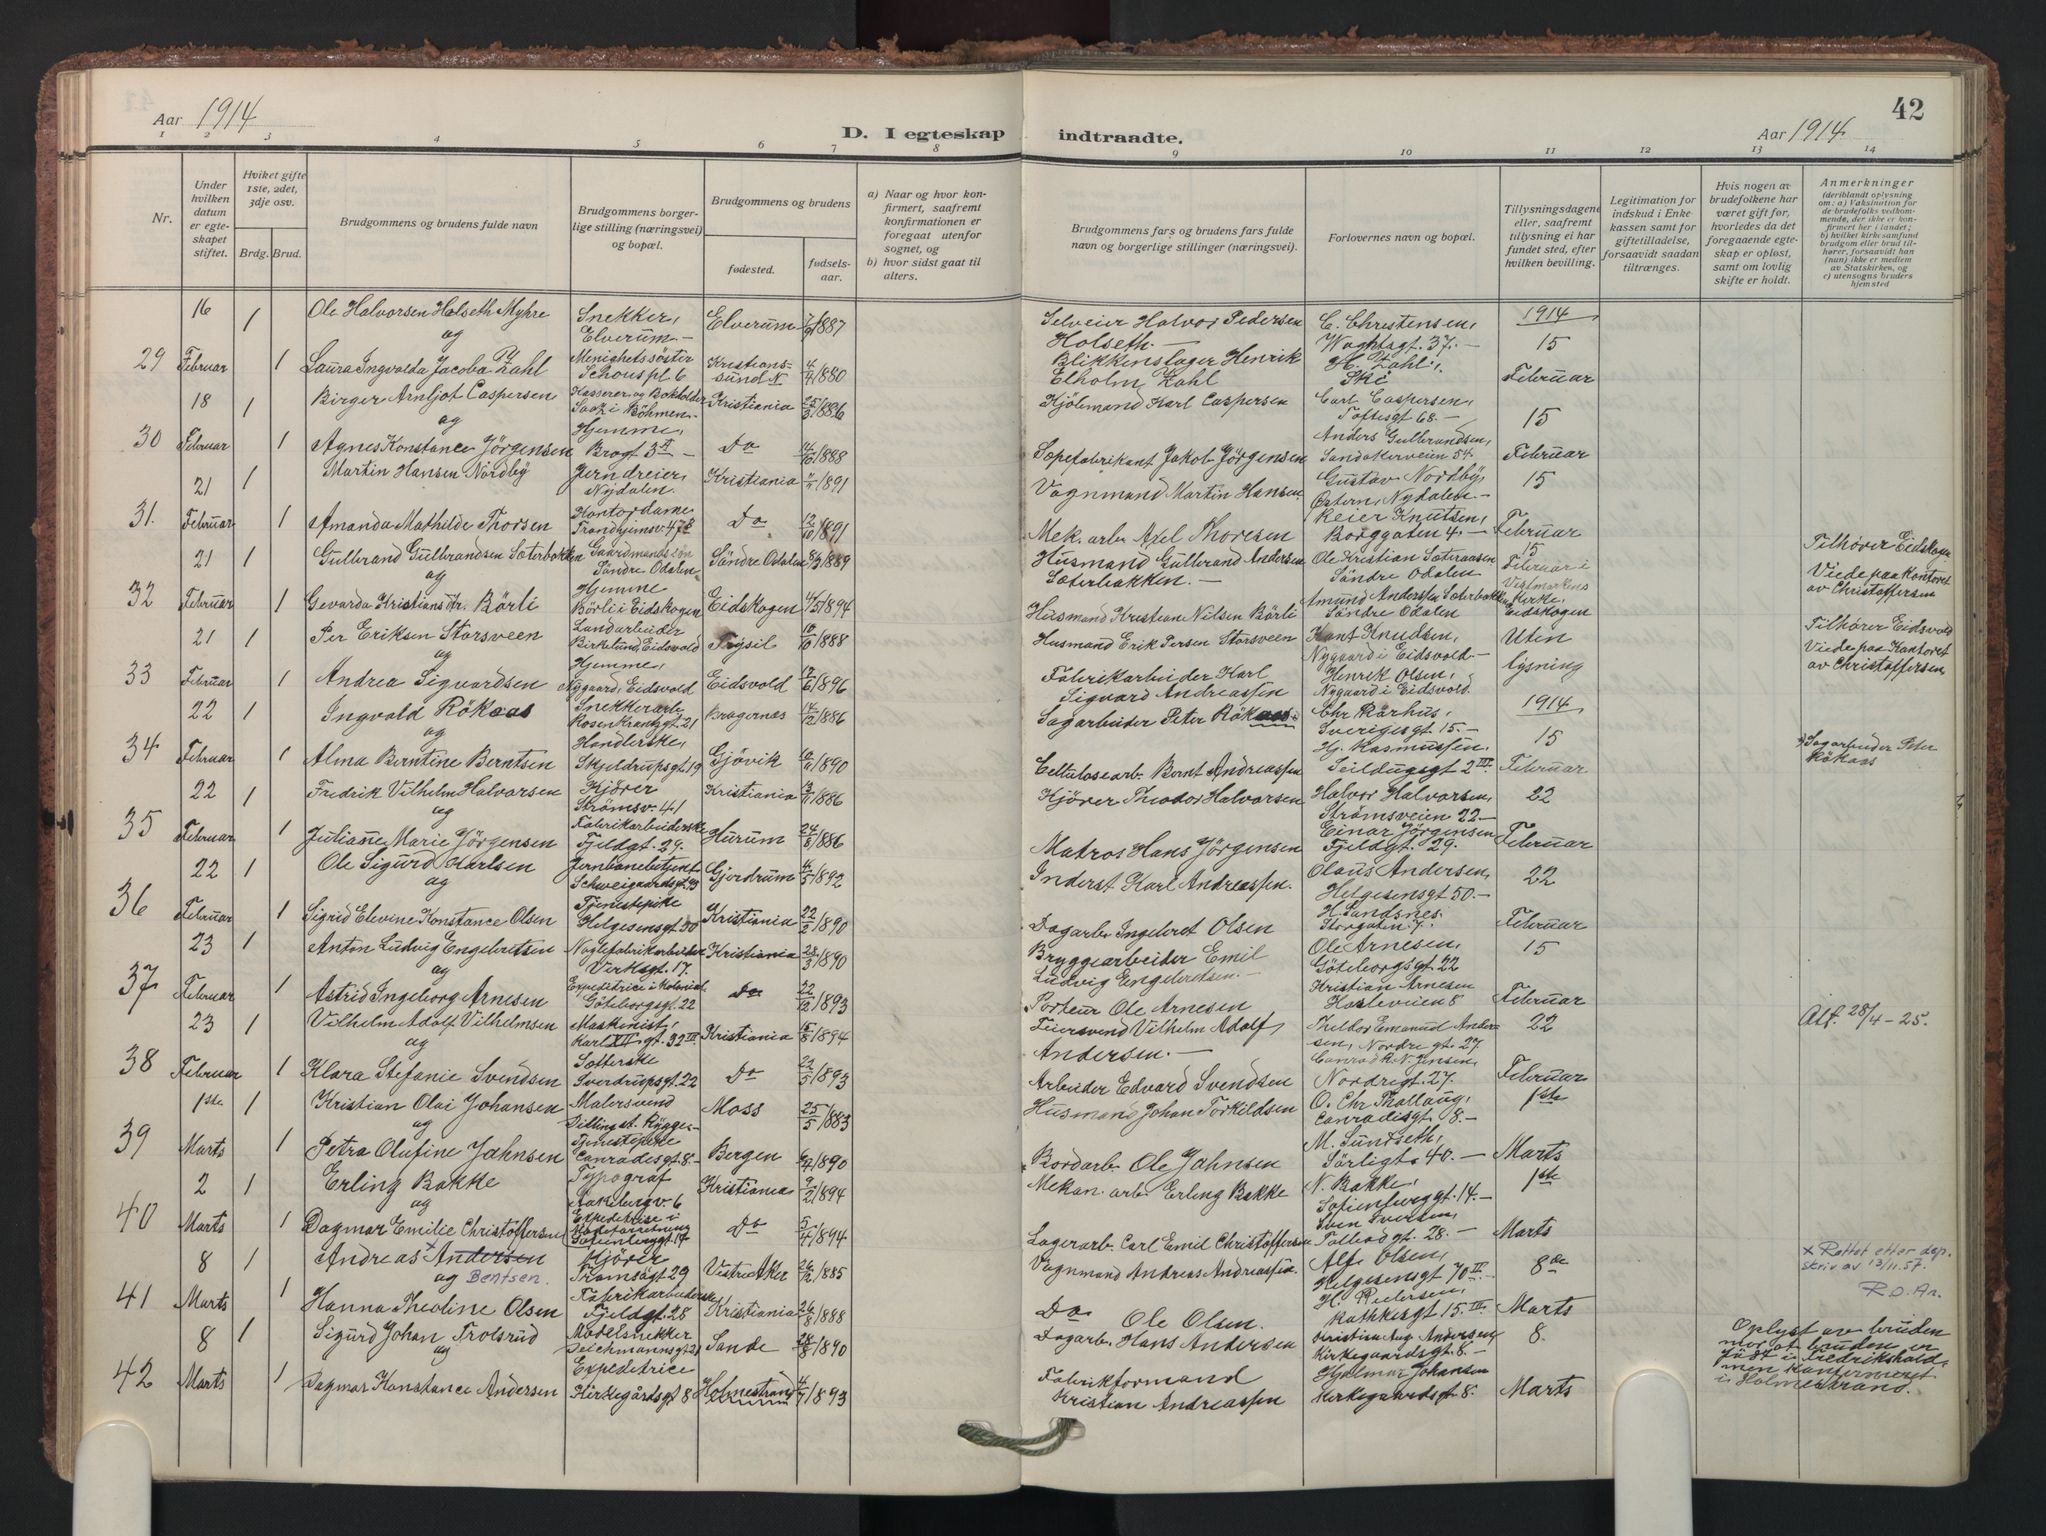 42
Aar 1914
D. I egteskap indtraadte.
Aar 1914
1 2 3 4 5 6 7 8 9 10 11 12 13 14
Nr.
Under hvilken datum er egteskapet stiftet.
Hviket gifte 1ste, 2det, 3dje osv.
Brdg. Brud.
Brudgommens og brudens fulde navn
Brudgommens borgerlige stilling (næringsvei) og bopæl.
Brudgommens og brudens
fødested.
fødselsaar.
a) Naar og hvor konfirmert, saafremt konfirmationen er foregaat utenfor sognet, og
b) hvor sidst gaat til alters.
Brudgommens fars og brudens fars fulde navn og borgerlige stillinger (næringsvei).
Forlovernes navn og bopæl.
Tillysningsdagene eller, saafremt tillysning ei har fundet sted, efter hvilken bevilling.
Legitimation for indskud i Enkekassen samt for giftetilladelse, forsaavidt saadan tiltrænges.
Hvis nogen av brudefolkene har været gift før, hvorledes da det foregaaende egteskap er opløst, samt om lovlig skifte er holdt.
Anmerkninger
(deriblandt oplysning om: a) Vaksination for de brudefolks vedkommende, der ikke er konfirmert her i landet; b) hvilket kirkesamfund brudgom eller brud tilhører, forsaavidt han (hun) ikke er medlem av Statskirken, og c) utensogns bruders hjemsted
29 16 Februar 1 1
Ole Halvorsen Holseth Myhre
og
Laura Ingvalda Jacoba Zahl
Snekker, Elverum.
Menighetssöster Schouspl. 6
Elverum 7/9 1887
Kristianssund N 4/4 1880
Selveier Halvor Pedersen Holseth.
Blikkenslager Henrik Elholm Zahl
C. Christensen, Waghtsgt. 37.
H. Zahl, Ski
1914
15 Februar
30 18 Februar 1 1
Birger Arnljot Caspersen
og
Agnes Konstance Jörgensen
Kasserer og Bokholder Saaz i Böhmen
Hjemme, Brogt 3 II
Kristiania 25/3 1886
Do 14/10 1888
Kjölmand Karl Caspersen
Sæpefabrikant Jakob Jörgensen
Carl Caspersen, Toftesgt 68.
Anders Gulbrandsen, Sandakerveien 54.
15 Februar
31. 21 Februar 1 1
Martin Hansen Nordby
Amanda Mathilde Thorsen
Jerndreier, Nydalen.
Kontordame Trondhjemsv. 47 B
Kristiania 1891
Do 12/10 1891
Vognmand Martin Hansen
Mek. arb. Axel Thoresen
Gustav Nordby, Östern, Nydalen.
Reier Knutsen, Borggaten 4.
15 Februar
32 21 Februar 1 1
Gulbrand Gulbrandsen Sæterbakken
og
Gevarda Kristians dtr. Börli
Gaardmandssön Söndre Odalen
Hjemme Börli i Eidskogen
Söndre Odalen 1889
Eidskogen 4/5 1894
Husmand Gulbrand Andersen Sæterbakken.
Husmand Kristian Nilsen Börli
Ole Kristian Sæteraasen Söndre Odalen
Amund Anderssen Sæterbakken Söndre Odalen
15 Februar i Vestmarkens kirke, Eidskogen
Tilhører Eidskogen
Viede paa kontoret av Christoffersen
33 21 Februar 1 1
Per Eriksen Storsveen
og
Andrea Sigvardsen
Landarbeider Birkelund, Eidsvold
Hjemme, Nygaard, Eidsvold
Trysil 10/10 1888
Eidsvold 17/6 1896
Husmand Erik Persen Storsveen
Fabrikarbeider Karl Sigvard Andreassen
Kant Knudsen, Nygaard i Eidsvold
Henrik Olsen, Nygaard i Eidsvold.
Uten lysning
Tilhører Eidsvold
Viede paa Kontoret av Christoffersen
34 22 Februar 1 1
Ingvald Rökaas
og
Alma Berntine Berntsen
Snekkerarb. Rosenkrantzgt. 21
Handlerske, Skjeldrupsgt. 19
Bragernæs 14/12 1886
Gjövik 10/11 1890
Sagarbeider Peter Rökaas
Cellulosearb. Bernt Andreassen
Chr Rörhus, Sverigesgt. 15.
Hj. Rasmussen, Seildugsgt 2 III
1914
15 Februar
Sagarbeider Peter Rökaas
35 22 Februar 1 1
Fredrik Vilhelm Halvorsen
og
Juliane Marie Jörgensen
Kjörer Strömsv. 41
Fabrikarbeiderske Fjeldgt. 29.
Kristiania 13/11 1886
Hurum 24/8 1886
Kjörer Theodor Halvorsen
Matros Hans Jörgensen
Halvor Halvorsen, Strömsveien 22.
Einar Jörgensen Fjeldgt. 29.
22 Februar
36 22 Februar 1 1
Ole Sigurd Karlsen
og
Sigrid Elevine Konstance Olsen
Jernbanebetjent Schweigaardsgt. 93
Tjenestepike Helgesensgt. 50
Gjerdrum 4/5 1892
Kristiania 22/2 1890
Inderst Karl Andreassen.
Dagarb. Ingebret Olsen
Olaus Andersen, Helgesensgt 50.
H. Sandsnes. Storgaten 7.
22 Februar
37 23 Februar 1 1
Anton Ludvig Engebretsen
og
Astrid Ingeborg Arnesen
Naglefabrikarbeider Verksgt. 17.
Expeditrice i Kolonial Göteborgsgt. 22
Kristiania 23/3 1890
Do 22/12 1893
Bryggearbeider Emil Ludvig Engebretsen.
Porteur Ole Arnesen
Ole Arnesen, Göteborgsgt. 22
Kristian Arnesen Hasleveien 8
15 Februar
38 23 Februar 1 1
Vilhelm Adolf Vilhelmsen
og
Klara Stefanie Svendsen
Maskinist, Karl XII gt. 32 III
Sætterske Sverdrupsgt. 22
Kristiania 15/8 1894
Do 22/5 1893
Feiersvend Vilhelm Adolf Andersen.
Arbeider Edvard Svendsen
Theodor Emanuel Andersen, Nordre gt. 27.
Conrad R. N. Jensen, Nordregt. 27.
22 Februar
Att. 28/4 – 25.
39 1ste Marts 1 1
Kristian Olai Johansen
og
Petra Olufine Jahnsen
Malersvend Dilling st. Rygge
Tjenestepike Conradisgt. 8.
Moss 25/5 1883
Bergen 1890
Husmand Johan Torkildsen
Bordarb. Ole Jahnsen
O. Chr Thallaug, Conradisgt. 8.
M. Sundseth, Sörligt. 40.
1ste Marts
40 2 Marts 1 1
Erling Bakke
og
Dagmar Emilie Christoffersen
Typograf Aakebergv. 6
Expeditrise i Sofienberggt 14
Kristiania 9/2 1894
Do 5/4 1894
Mekan. arb. Erling Bakke
Lagerarb. Carl Emil Christoffersen
N. Bakke, Sofienberggt. 14.
Sven Iversen, Tolbodgt. 28.
1ste Marts
41 8 Marts 1 1
Andreas x Andersen
og Bentsen.
Hanna Theoline Olsen
Kjörer Tromsögt 29
Fabrikarbeiderske Fjeldgt. 28
Vestre Aker 26/12 1885
Kristiania 26/8 1888
Vognmand Andreas Andreassen.
Do Ole Olsen.
Alf Olsen, Helgesensgt 70 II
H. Pedersen, Rathkesgt. 15 III
8de Marts
x Rettet efter dep. skriv av 13/11.57.
R.O. An.
42 8 Marts 1 1
Sigurd Johan Trolsrud
og
Dagmar Konstance Andersen
Modelsnekker Deichmannsgt 21
Expeditrice Kirkegårdsgt 8
Sande 28/8 1890
Holmestrand 1893
Dagarb. Hans Andersen
Fabrikformand Kristian Andreassen
Kristian Aug. Andersen Kirkegaardsgt. 8.
Hjalmar Johansen Kirkegaardsgt 8.
8. Marts
Oplyst av bruden mor at bruden er født i Fredrikshald, men konfermeret i Holmestrand.